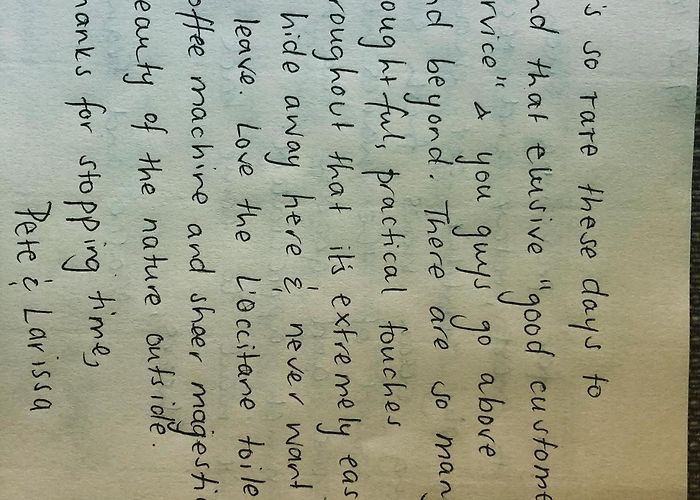 's so rare these days to
nd that elusive "good custome
rvice" & you guys go above
nd beyond. There are so man
oughtful, practical touches
roughout that it's extremely eas
hide away here & never want
leave. Love the L'occitane toile
offee machine and sheer magesti
eauty of the nature outside.
hanks for stopping time,
Pete & Larissa